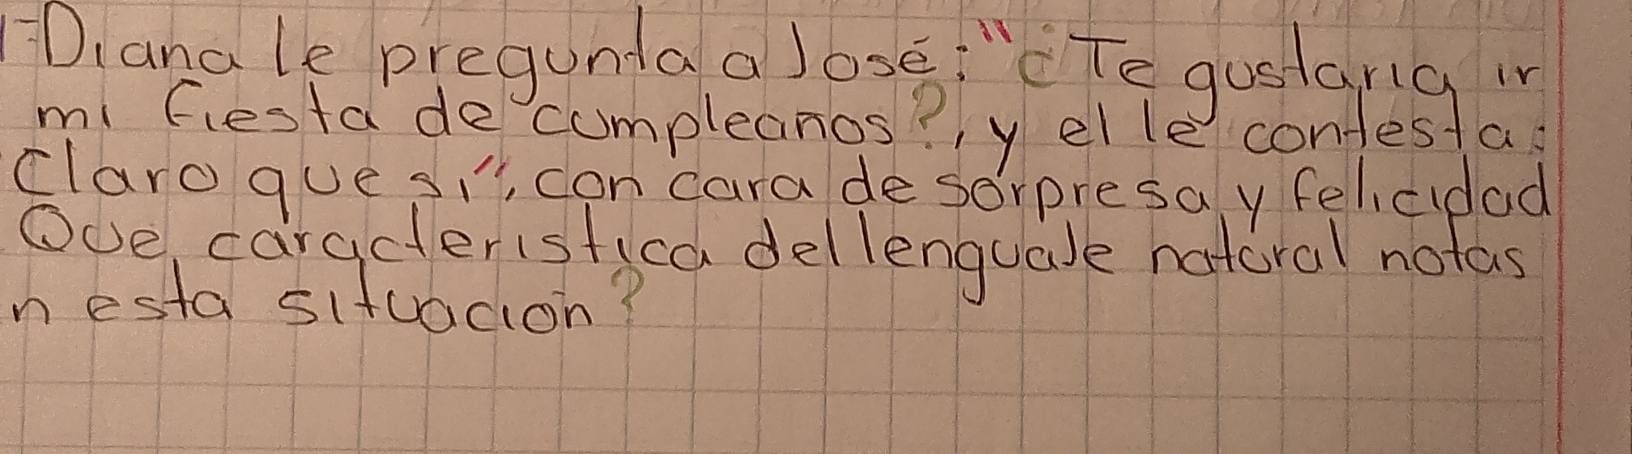 1-Diana le pregunta a José: "¿Te gustaria ir
mi fiesta de cumpleanos?, y el le contesta:
Claro que si", con cara de sorpresa y felicidad
Que caracteristica del lenguaje natural notas
n esta situacion?